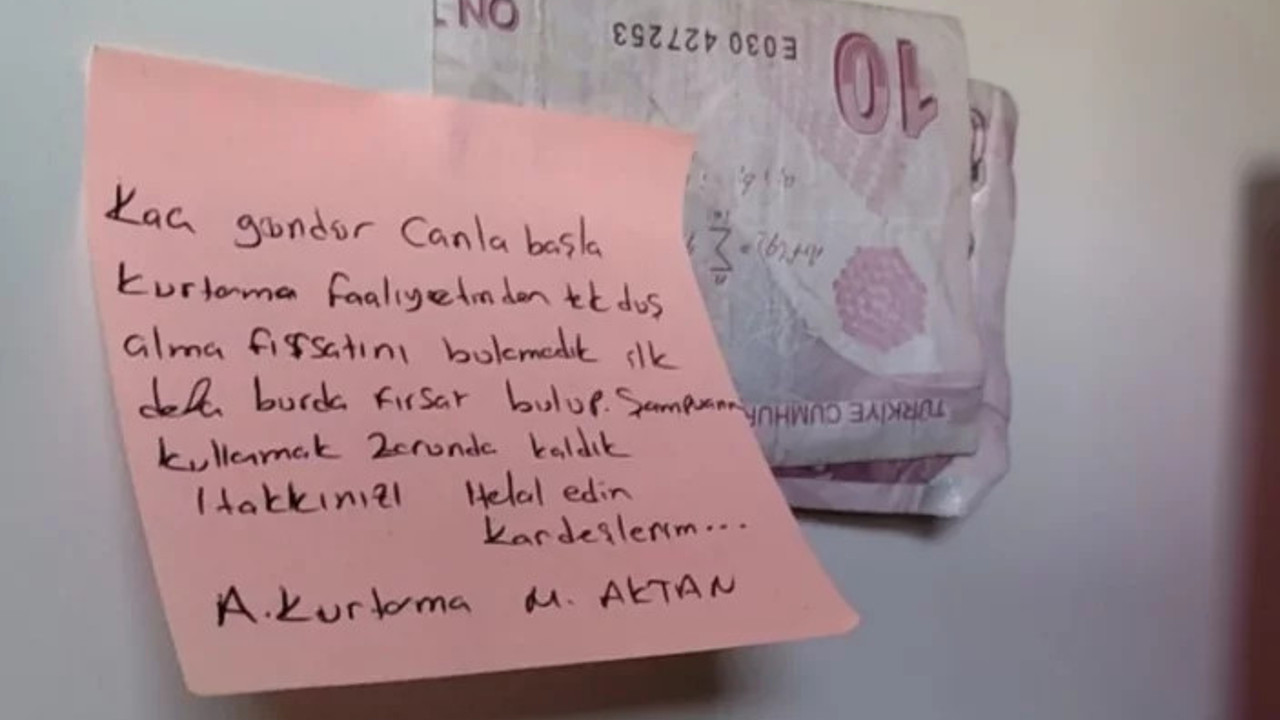 NO
E030 427253
10
TÜRKİYE CUMHUR
Kaç gündür Canla başla
Kurtarma faaliyetinden tek duş
alma fırsatını bulamadık ilk
defa burda fırsat bulup. Şampuanı
kullanmak Zorunda kaldık
Hakkınızı Helal edin
Kardeşlerim...
A.Kurtarma M. AKTAN